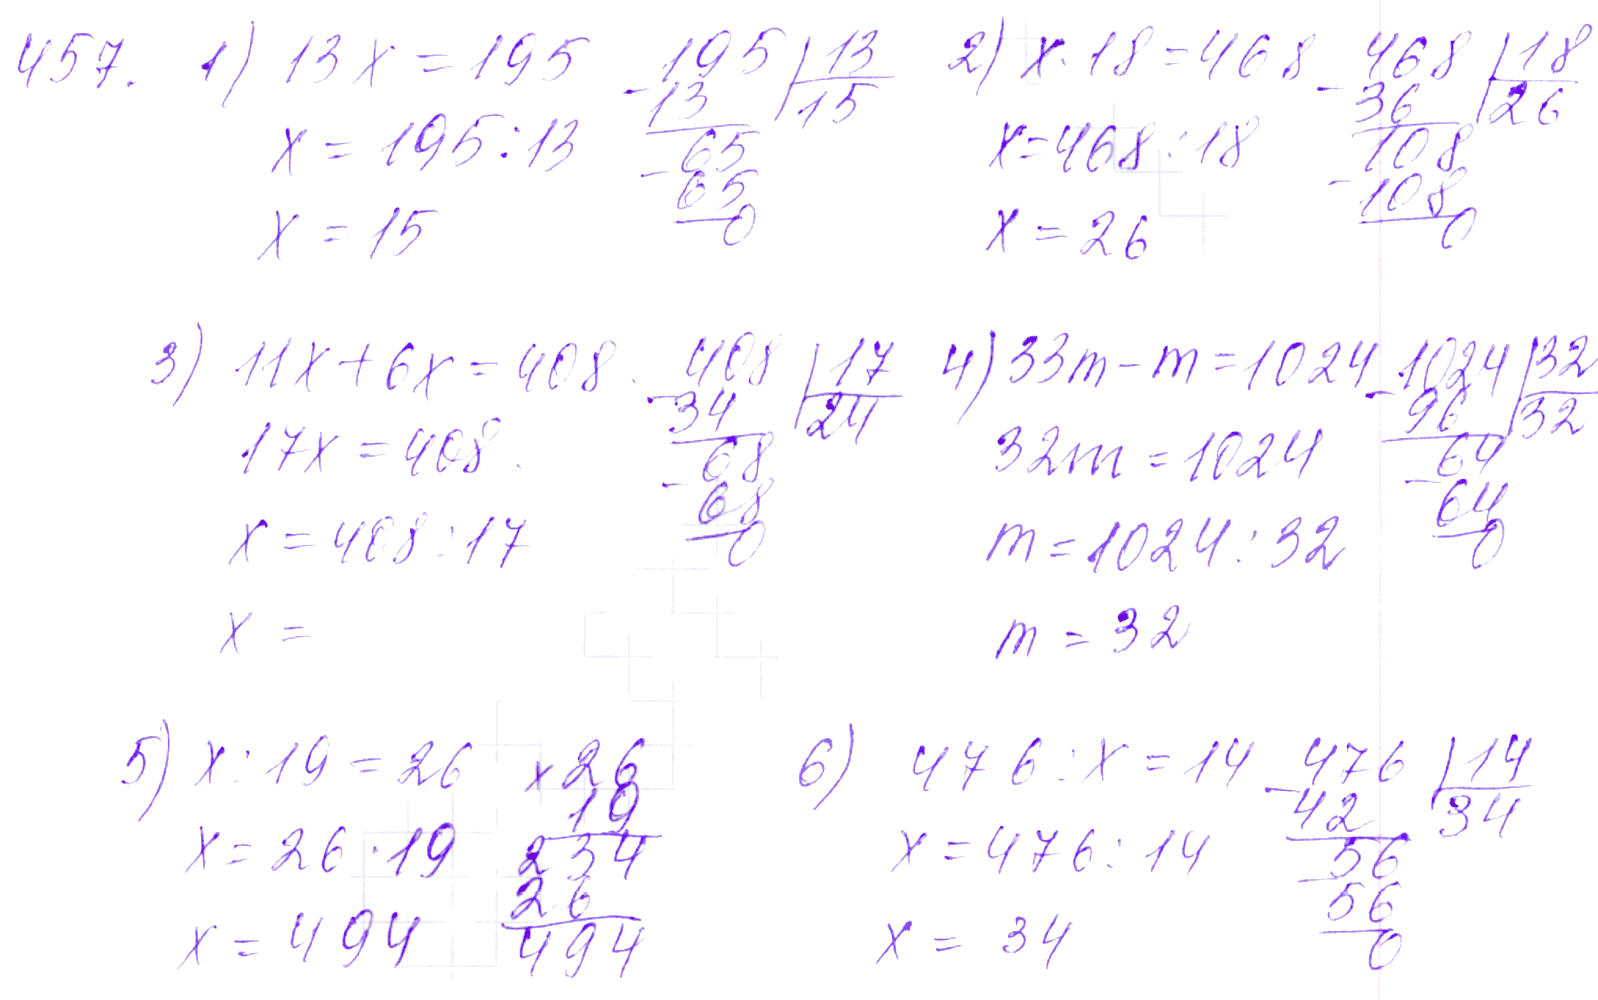 457. 1) 13x = 195 - 195 | 13
13 15
x = 195 : 13 65
- 65
x = 15 0
2) x · 18 = 468 - 468 | 18
36 26
x = 468 : 18 108
- 108
x = 26 0
3) 11x + 6x = 408 - 408 | 17
34 24
17x = 408 68
- 68
x = 408 : 17 0
x =
4) 33m - m = 1024 - 1024 | 32
96 32
32m = 1024 64
- 64
m = 1024 : 32 0
m = 32
5) x : 19 = 26 x 26
19
x = 26 · 19 234
26
x = 494 494
6) 476 : x = 14 - 476 | 14
42 34
x = 476 : 14 - 56
56
x = 34 0